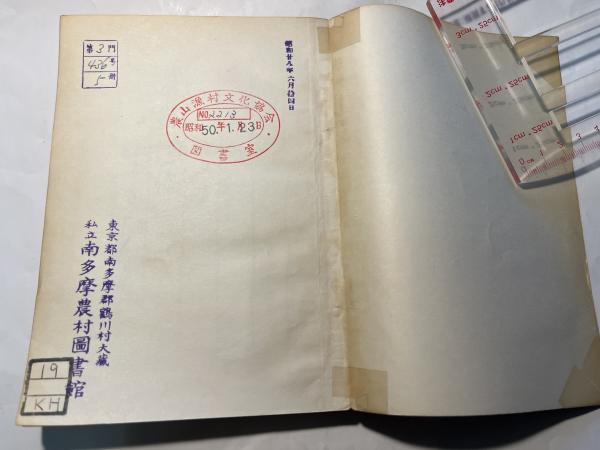 第3門
456号
5冊
昭和廿八年六月拾四日
農山漁村文化協会
NO.2213
昭和50.年1.月23日
図書室
東京都南多摩郡鶴川村大蔵
私立南多摩農村圖書館
19
KH
3cm
2cm
1cm
0cm
1
2
3